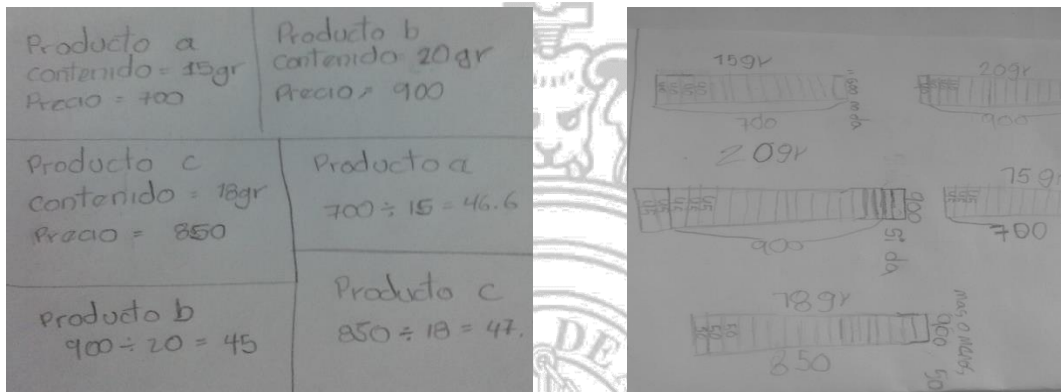 Producto a
contenido = 15gr
Precio = 700
Producto b
contenido 20gr
Precio = 900
Producto c
contenido = 18gr
Precio = 850
Producto a
700 ÷ 15 = 46.6
Producto b
900 ÷ 20 = 45
Producto c
850 ÷ 18 = 47.
DE
15gr
700
20gr
900
20gr
900
900
si da
15g
700
18gr
850
900
50